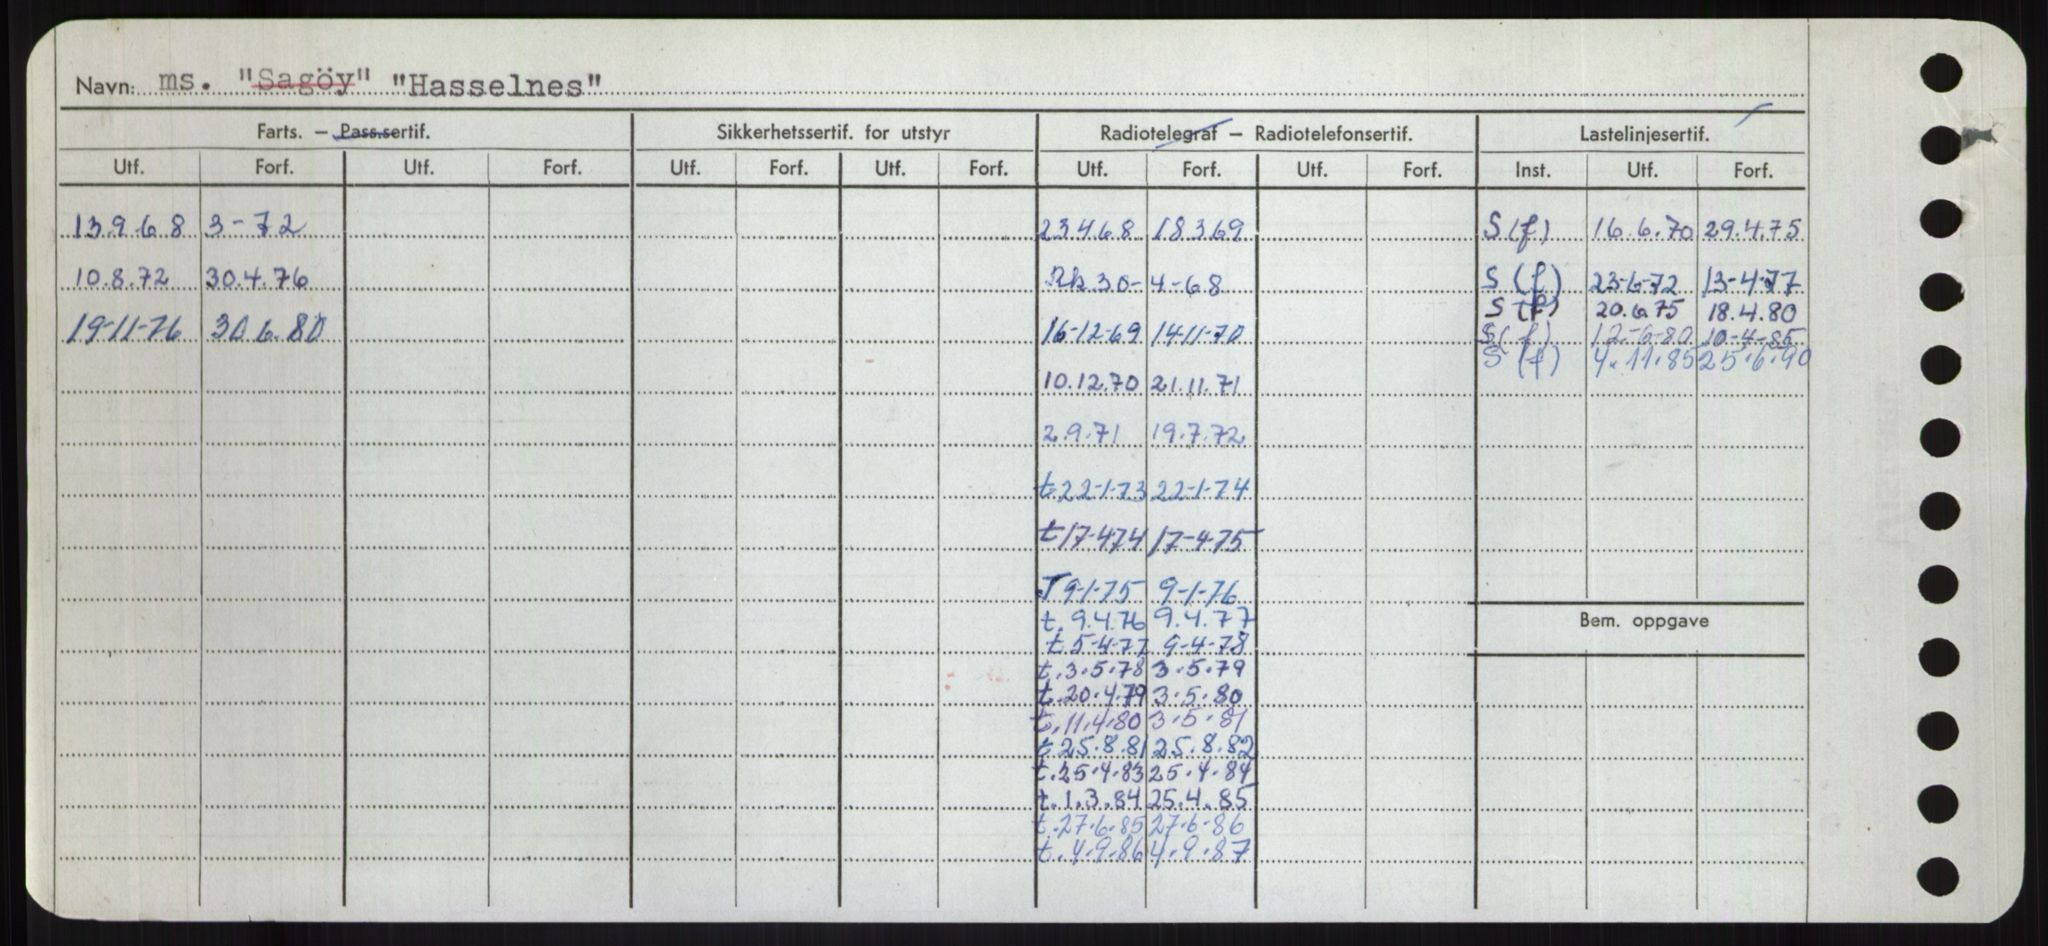 Navn: ms. "Sagöy" "Hasselnes"
Farts. – Pass.sertif. Sikkerhetssertif. for utstyr Radiotelegraf – Radiotelefonsertif. Lastelinjesertif.
Utf. Forf. Utf. Forf. Utf. Forf. Utf. Forf. Utf. Forf. Utf. Forf. Inst. Utf. Forf.
13.9.68 3-72 23.4.68 18.3.69 S(f) 16.6.70 29.4.75
10.8.72 30.4.76 30-4-68 S(f) 23-6-72 13-4-77
S(f) 20.6.75 18.4.80
19-11-76 30.6.80 16-12-69 14-11-70 S(f) 12-6-80 10-4-85
S(f) 4.11.85 25.6.90
10.12.70 21.11.71
2.9.71 19.7.72
t.22-1-73 22-1-74
t17-4-74 17-4-75
T9-1-75 9-1-76
t.9.4.76 9.4.77
Bem. oppgave
t.5-4-77 9-4-78
t.3.5.78 3.5.79
t.20.4.79 3.5.80
t.11.4.80 3.5.81
t.25.8.81 25.8.82
t.25.4.83 25.4.84
t.1.3.84 25.4.85
t.27.6.85 27.6.86
t.4.9.86 4.9.87